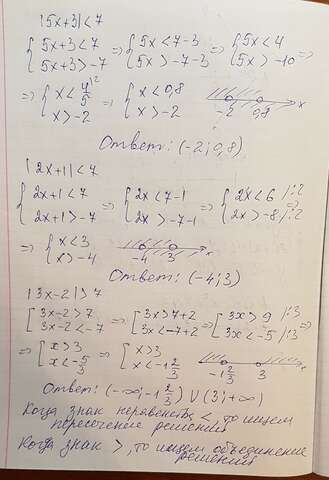 |5x+3|<7
{5x+3<7 => {5x<7-3 => {5x<4 =>
{5x+3>-7 {5x>-7-3 {5x>-10
=> {x<4/5 => {x<0,8
{x>-2 {x>-2 -2 0,8 x
Ответ: (-2; 0,8)
|2x+1|<7
{2x+1<7 => {2x<7-1 => {2x<6 |:2 =>
{2x+1>-7 {2x>-7-1 {2x>-8 |:2
=> {x<3 -4 3 x
{x>-4
Ответ: (-4; 3)
|3x-2|>7
[3x-2>7 => [3x>7+2 => [3x>9 |:3 =>
[3x-2<-7 [3x<-7+2 [3x<-5 |:3
=> [x>3 => [x>3
[x<-5/3 [x<-1 2/3 -1 2/3 3 x
Ответ: (-∞; -1 2/3) ∪ (3; +∞)
Когда знак неравенства <, то ищем
пересечение решений
Когда знак >, то ищем объединение
решений